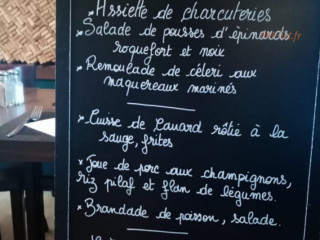 * Assiette de charcuteries
* Salade de pousses d'épinards
roquefort et noix
* Remoulade de céleri aux
maquereaux marinés
* Cuisse de Canard rôtie à la
sauge, frites
* Joue de porc aux champignons,
riz pilaf et flan de légumes.
* Brandade de poisson, salade.